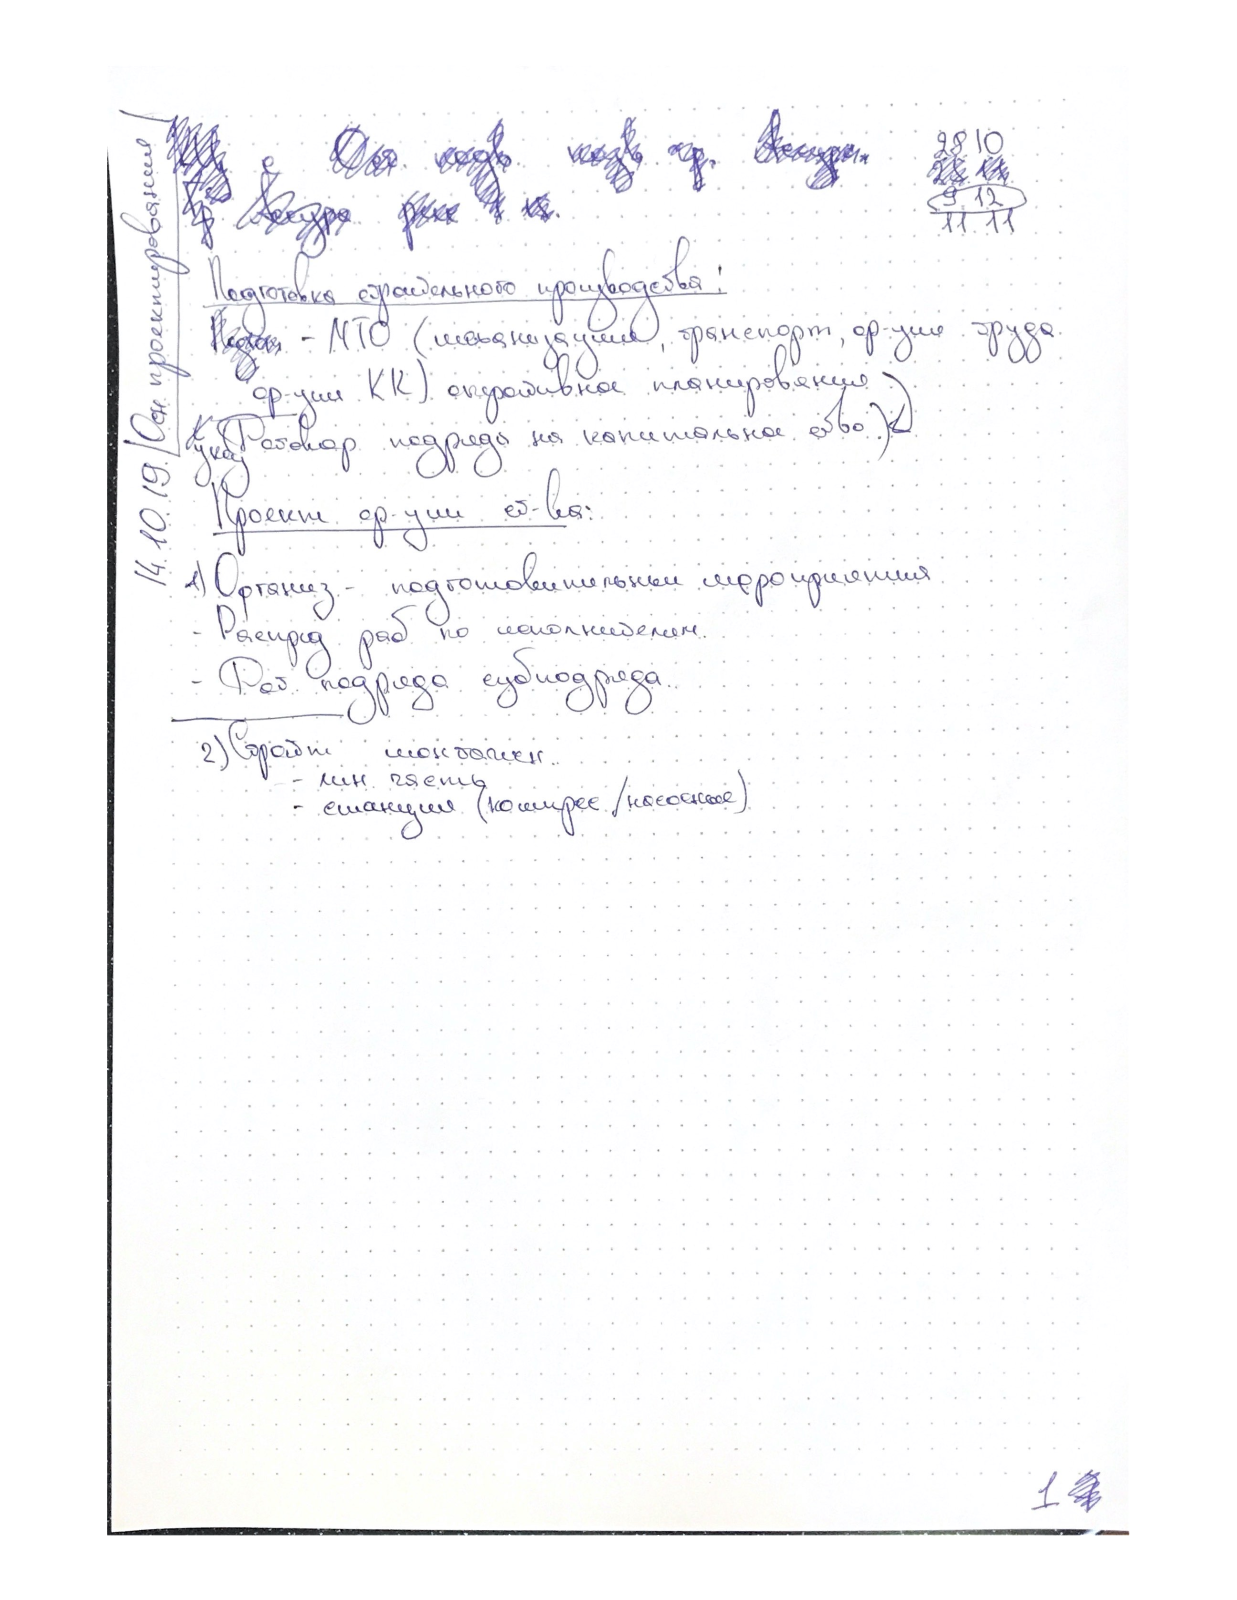 14.10.19. Осн проектирования
28 10
9.12
11.11
Подготовка строительного производства:
- МТО (механизация, транспорт, ор-ции труда
ор-ции КК) оперативное планирование
Договор подряда на капитальное ство.
Проект ор-ции ст-ва:
1) Организ - подготовительные мероприятия
- Распред раб по исполнителям.
- Дог. подряда субподряда
2) Строит монтажн.
- лин. часть
- станции (компрес/насосные)
1